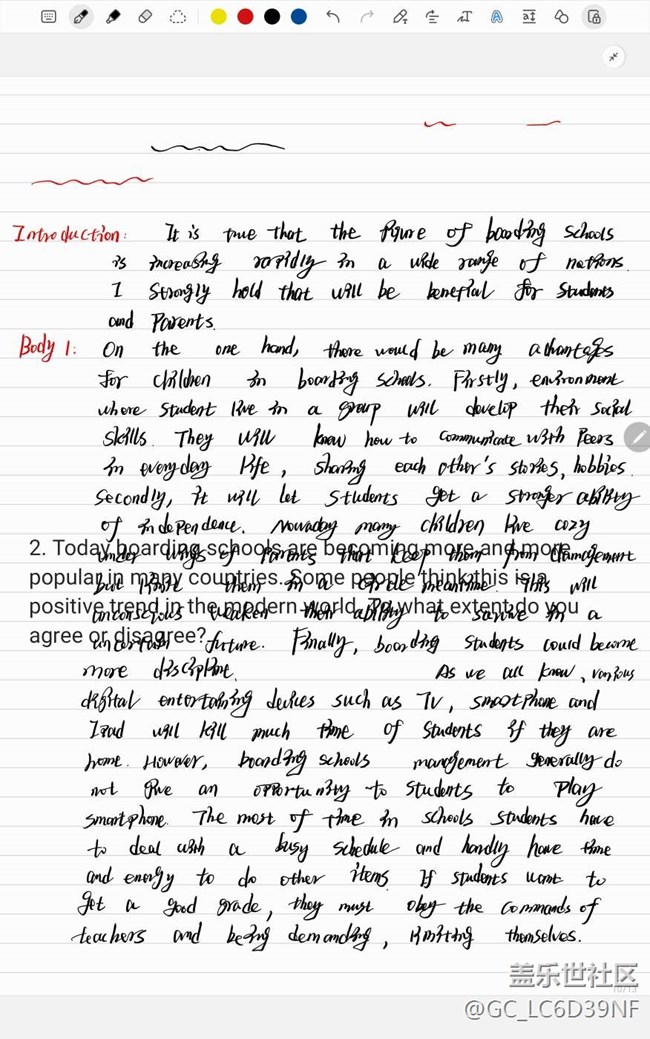 Introduction: It is true that the figure of boarding schools
is increasing rapidly in a wide range of nations.
I strongly hold that will be benefial for students
and Parents.
Body 1: On the one hand, there would be many advantages
for children in boarding schools. Firstly, environment
where student live in a group will develop their social
skills. They will know how to communicate with Peers
in everyday life, sharing each other's stories, hobbies.
Secondly, it will let students get a stronger ability
of independence. Nowaday many children live cozy
2. Today boarding schools are becoming more and more
under wings of Parents that keep them from
popular in many countries. Some people think this is a
but them in a circle meantime. This will
positive trend in the modern world. To what extent do you
unconscious weaken their ability to survive in a
agree or disagree?
uncertain future. Finally, boarding students could become
more discipline. As we all know, various
digital entertaining devices such as TV, smartphone and
Ipad will kill much time of students if they are
home. However, boarding schools management generally do
not give an opportunity to students to play
smartphone. The most of time in schools students have
to deal with a busy schedule and hardly have time
and energy to do other items. If students want to
get a good grade, they must obey the commands of
teachers and being demanding, limiting themselves.
盖乐世社区
@GC_LC6D39NF